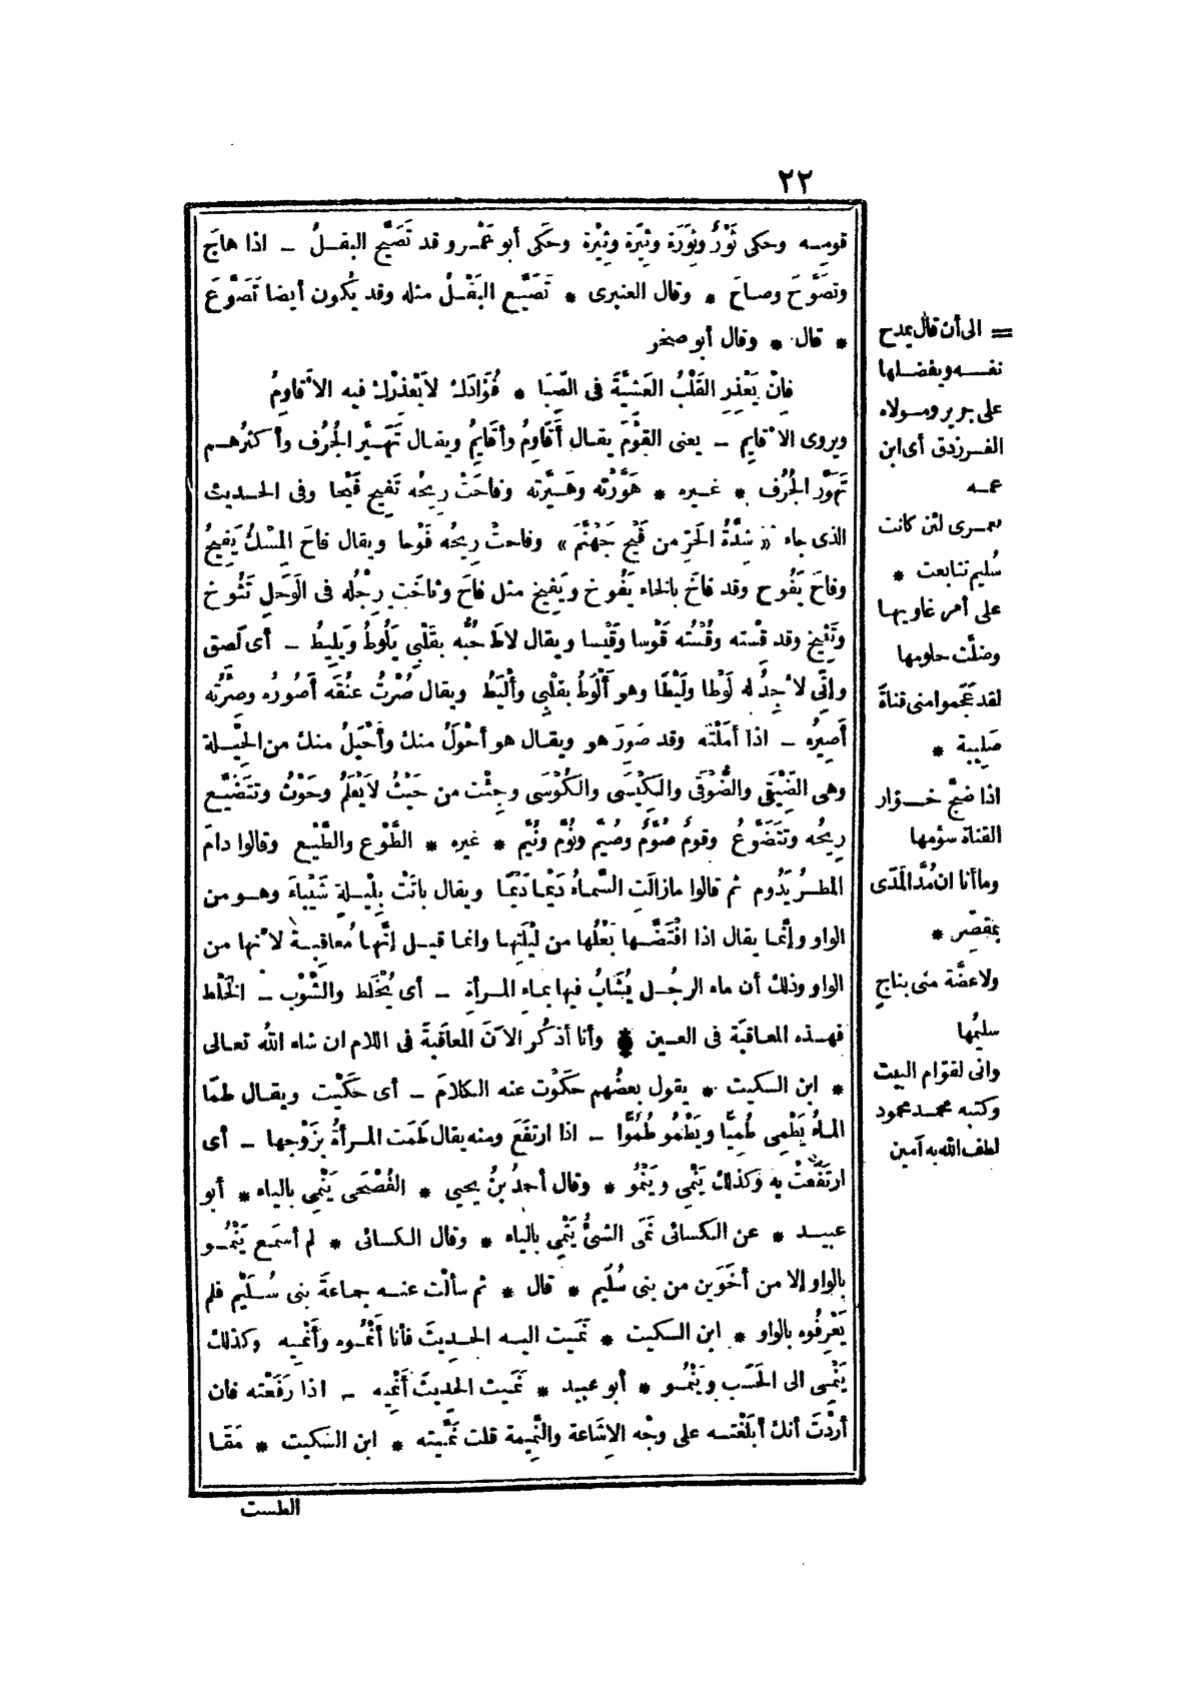 ٢٢
قومِـه وحكى ثَوْرٌ وثِوَرَة وثِيَرَة وثِيْرة وحَكى أبو عَمْـرو قد تَصَيَّح البقـلُ ـ اذا هاجَ
وتصَوَّحَ وصـاحَ * وقال العنبرى * تَصَيَّـع البَقْـلُ مثله وقد يكُون أيضا تَصَوَّعَ
* قال * وقال أبو صخر
فانْ يَعْذِرِ القَلْبُ العَشِيَّةَ فى الصِّبَا * فُؤَادَكَ لاَيَعْذِرْكَ فيه الاَقَاوِمُ
ويروى الاَقايِم ـ يعنى القَوْمَ يقـال أَقَاوِمُ وأَقايِمُ ويقـال تَهَيَّر الجُرُف وأكثرُهـم
تَهَوَّر الجُرُف * غـيره * هَوَّرْته وهَيَّرته وفاحَتْ رِيحُه تَفِيح فَيْحًا وفى الحـديث
الذى جاء « شِدَّةُ الحَرِّ من فَيْح جَهَنَّمَ » وفاحتْ رِيحُه فَوْحا ويقال فاحَ المِسْكُ يَفِيحُ
وفاحَ يَفُوح وقد فاخَ بالخاء يَفُوخ ويَفِيخ مثل فاحَ وثاخَتِ رِجْلُه فى الوَحَلِ تَثُوخ
وتَثِيخ وقد قسْته وقُسْته قَوْسا وقَيْسا ويقال لاطَ حُبُّه بقَلْبِى يَلُوطُ ويَلِيطُ ـ أى لَصق
وانِّى لاَجِدُ له لَوْطا ولَيْطًا وهو أَلْوَطُ بقَلْبِى وأَلْيَطُ ويقال صُرْتُ عنُقَه أَصُورُه وصِرْتُه
أَصِيرُه ـ اذا أمَلْته وقد صَوِرَ هو ويقـال هو أحْوَلُ منكَ وأَحْيَلُ منكَ من الحِيـلة
وهى الضِّيْقَى والضُّوْقَى والكِيْسَى والكُوسَى وجِئْت من حَيْثُ لايَعْلَمُ وحَوْثُ وتتَضَيَّـع
رِيحُه وتتَضَوَّعُ وقوم صُوَّمٌ وصُيَّم ونُوَّم ونُيَّم * غيره * الطَّوْع والطَّيْـع وقالوا دامَ
المطـرُ يَدُوم ثم قالوا مازالَتِ السَّماءُ دَيْمًا دَيْمًا ويقال باتَتْ بِلَيْـلةِ شَيْباءَ وهـو من
الواو وإنَّمـا يقال اذا افْتَضَّـها بَعْلُها من لَيْلَتِها وانما قيـل إنَّها مُعاقِبـة لاَنها من
الواو وذلك أن ماء الرجُـل يُشَابُ فيها بماء المـرأةِ ـ أى يُخْلَط والشَّوْب ـ الخَلْط
فهـذه المعـاقبَة فى العـين * وأنا أذكُر الآنَ المعاقَبةَ فى اللام ان شاء اللهُ تعـالى
* ابن السكيت * يقول بعضُهم حكَوْت عنه الكلامَ ـ أى حَكَيْت ويقـال طمَا
المـاءُ يَطْمِى طُمِيًّا ويَطْمُو طُمُوًّا ـ اذا ارتفَعَ ومنه يقال طَمَت المـرأةُ بزَوْجها ـ أى
ارتَفَعتْ بِه وكذلكَ يَنْمِى ويَنْمُو * وقال أحمدُ بنُ يحيى * الفُصْحَى يَنْمِى بالياء * أبو
عبيـد * عن الكسائى نَمَى الشىءُ يَنْمِى بالياء * وقال الكسائى * لم أسمَع يَنْمُـو
بالواو إلا من أخَوَين من بنى سُلَيم * قال * ثم سألت عنـه جماعَة بنى سُـلَيْم فلم
يَعْرِفُوه بالواو * ابن السكيت * نَمَيت اليـه الحـديثَ فأنا أَنْمُـوه وأَنْمِيه وكذلك
يَنْمِـى الى الحَسَب ويَنْمُـو * أبو عبيد * نَمَيت الحدِيثَ أَنْمِيه ـ اذا رَفَعْته فان
أردْتَ أنك أبلَغْتـه على وجْه الاِشَاعة والنَّمِيمة قلت نَمَّيته * ابن السكيت * مَقَـا
الطست
= الى أن قال يمدح
نفسـه ويفضـلها
على جرير ومـولاه
الفـرزدق أى ابن
عمـه
لئن كانت
سُليم تتابعت *
على أمر غاويهـا
وضلَّت حلومها
لقد عَجَموا منى قناةً
صَلِيبة *
اذا ضجّ خـوّار
القناة سؤمها
وما أنا ان مُدَّ المَدَى
بمقصّر *
ولا عضَّة منى بناجٍ
سليمُها
وانى لقوّام البيت
وكتبه محمـد محمود
لطف الله به آمين